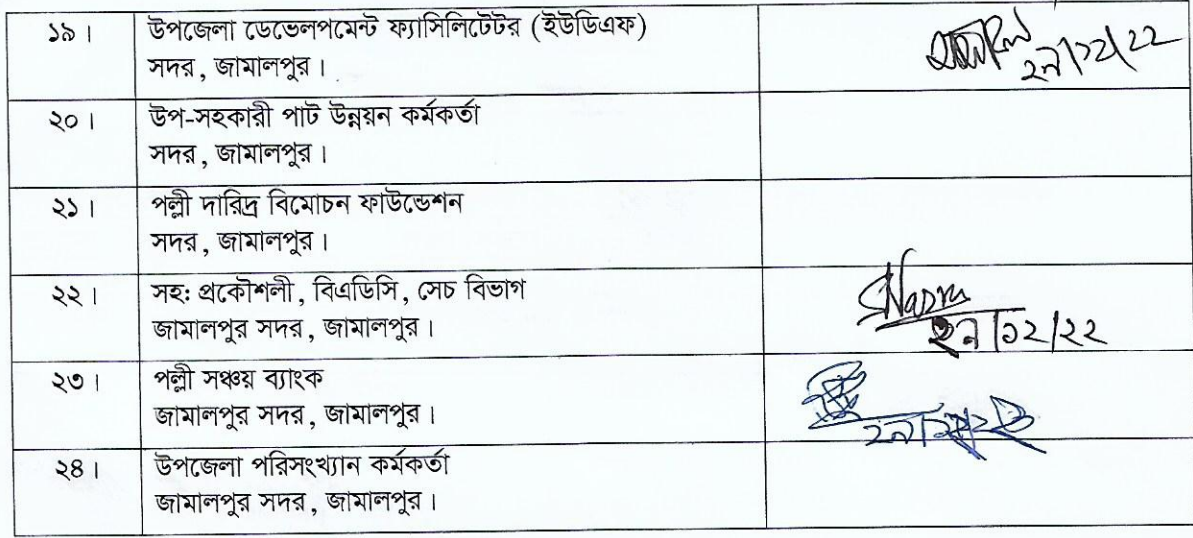 ১৯। উপজেলা ডেভেলপমেন্ট ফ্যাসিলিটেটর (ইউডিএফ)
সদর, জামালপুর।
২৯/১২/২২
২০। উপ-সহকারী পাট উন্নয়ন কর্মকর্তা
সদর, জামালপুর।
২১। পল্লী দারিদ্র বিমোচন ফাউন্ডেশন
সদর, জামালপুর।
২২। সহঃ প্রকৌশলী, বিএডিসি, সেচ বিভাগ
জামালপুর সদর, জামালপুর।
২৯/১২/২২
২৩। পল্লী সঞ্চয় ব্যাংক
জামালপুর সদর, জামালপুর।
২৪। উপজেলা পরিসংখ্যান কর্মকর্তা
জামালপুর সদর, জামালপুর।